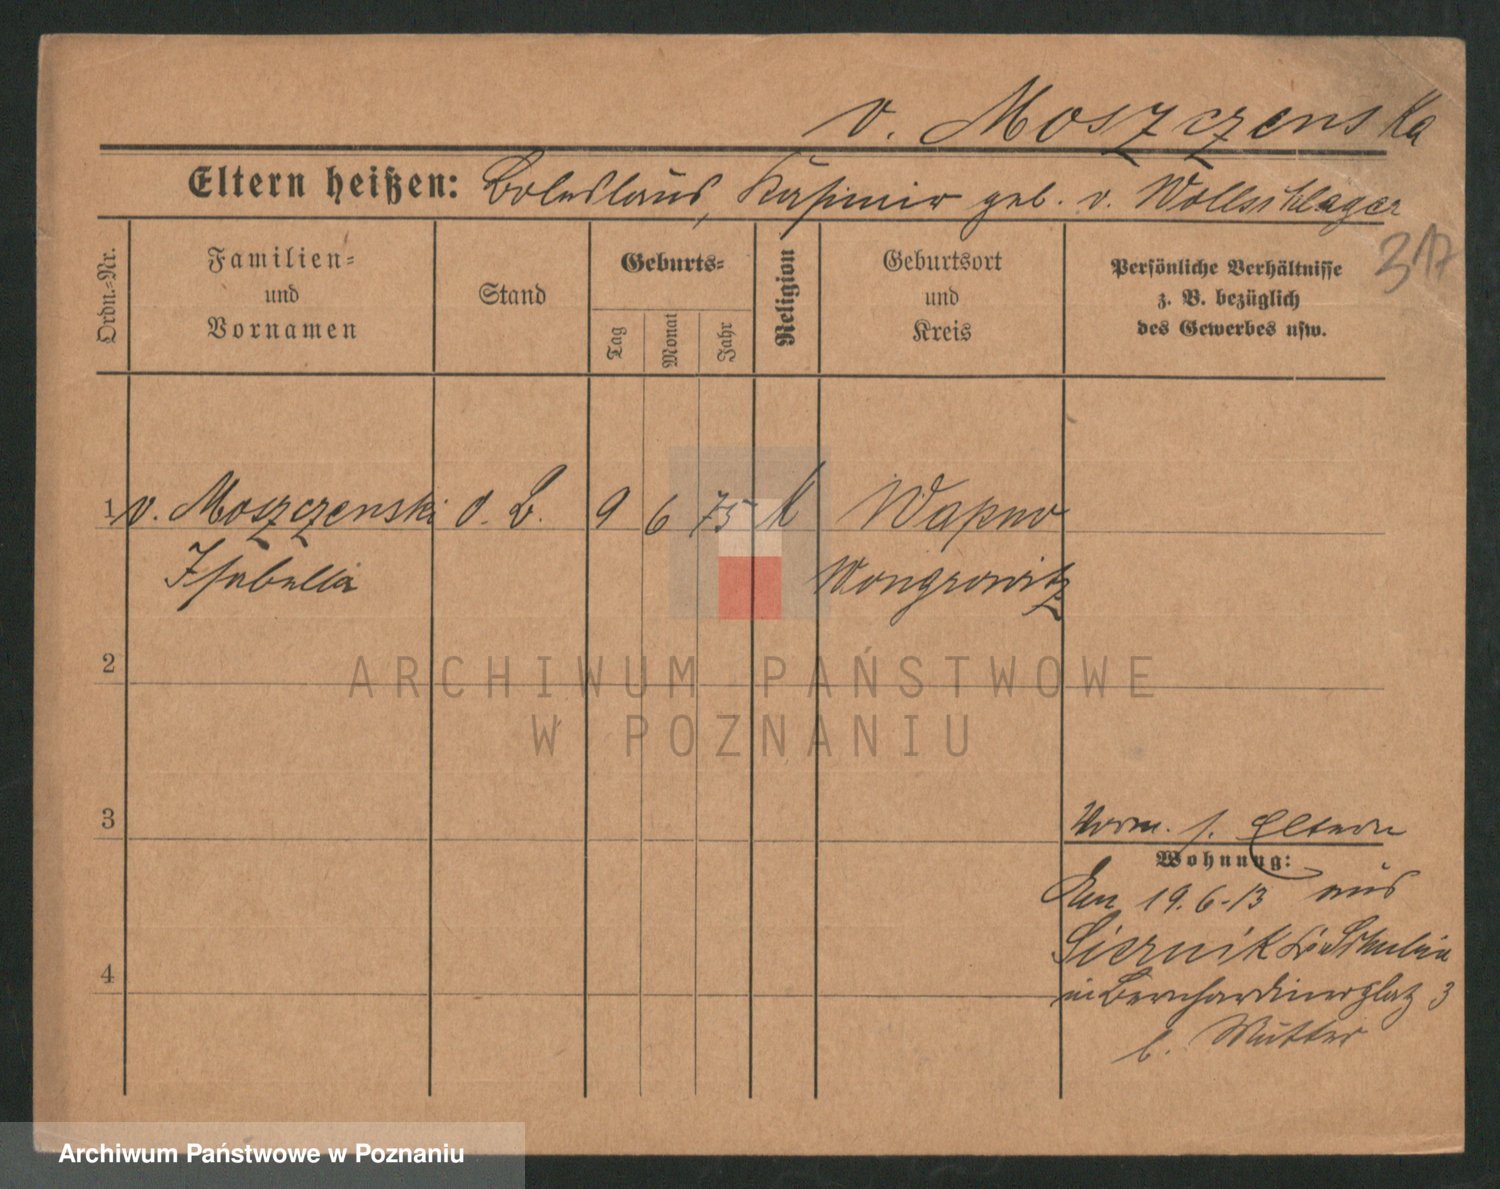 v. Moszczenska
Eltern heißen: Boleslaus, Kasimir geb. v. Wollschläger
317
Ordn.-Nr.
Familien-
und
Vornamen
Stand
Geburts-
Tag
Monat
Jahr
Religion
Geburtsort
und
Kreis
Persönliche Verhältnisse
z. B. bezüglich
des Gewerbes usw.
1 v. Moszczenski o. B. 9 6 75 K Wapno
Isabella Wongrowitz
2
ARCHIWUM PAŃSTWOWE
W POZNANIU
3
Vorm. s. Eltern
Wohnung:
Am 19.6.13 aus
Siernik Kr Schubin
4
in Bernhardinerplatz 3
b. Mutter
Archiwum Państwowe w Poznaniu